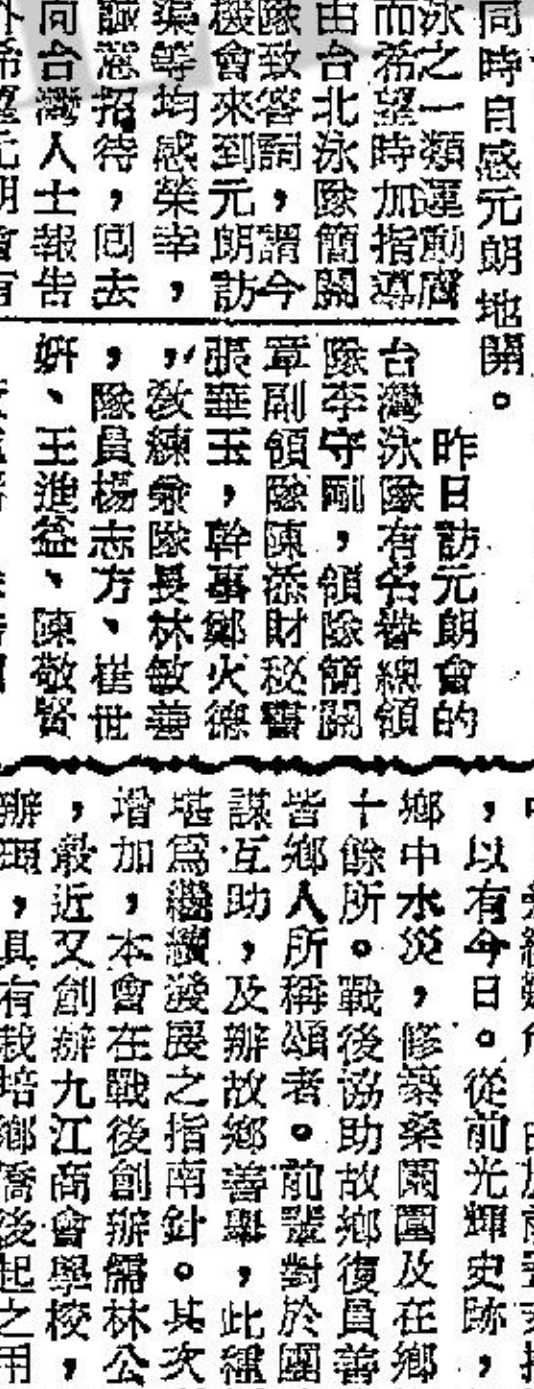 同時自感元朗地開。
泳之一類運動齊
而希望時加指導
由台北泳隊簡開
隊致答詞，謂今
機會來到元朗訪
渠等均感榮幸，
誠懇招待，囘去
向台灣人士報告
外希望元朗會有
昨日訪元朗會的
台灣泳隊有名譽總領
隊李守剛，領隊簡開
章副領隊陳添財秘書
張華玉，幹事鄭火德
，敎練兼隊長林敏善
，隊員楊志方、崔世
妍、王進益、陳敬賢
，以有今日。從前光輝史跡，
鄉中水災，修築桑園圍及在鄉
十餘所。戰後協助故鄉復員善
皆鄉人所稱頌者。前號對於團
謀互助，及辦故鄉善舉，此種
堪爲繼續發展之指南針。其次
增加，本會在戰後創辦儒林公
，最近又創辦九江商會學校，
辦理，具有栽培鄉僑後起之用